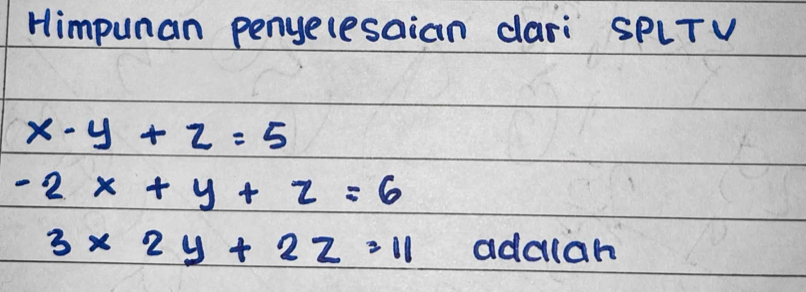 Himpunan penyelesaian dari SPLTV
x - y + z = 5
-2 x + y + z = 6
3 x 2 y + 2 z = 11 adalah